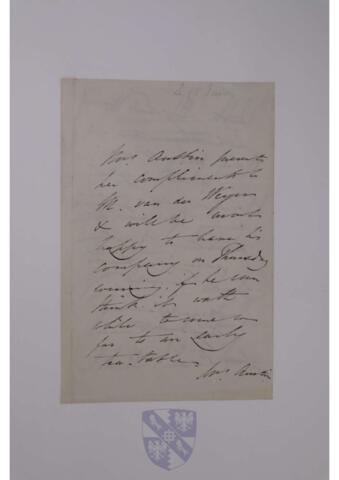 Mrs. Austin presents
her compliments to
M. van der Weyer
& will be most
happy to have his
company on Thursday
evening, if he can
think it worth
while to come so
far to an early
tea-table.
Mrs. Austin